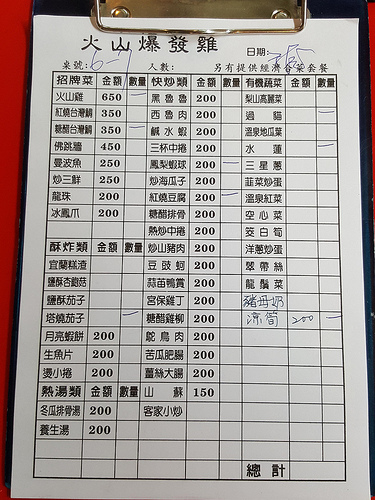 火山爆發雞
日期:
桌號: 6-1 人數: 另有提供經濟合菜套餐
招牌菜 金額 數量 快炒類 金額 數量 有機蔬菜 金額 數量
火山雞 650 一 黑魯魯 200 梨山高麗菜
紅燒台灣鯛 350 西魯肉 200 過貓 一
糖醋台灣鯛 350 一 鹹水蝦 200 溫泉地瓜葉
佛跳牆 450 三杯中捲 200 水蓮 一
曼波魚 250 鳳梨蝦球 200 一 三星蔥
炒三鮮 250 炒海瓜子 200 韮菜炒蛋
龍珠 200 紅燒豆腐 200 一 溫泉紅菜
冰鳳爪 200 糖醋排骨 200 空心菜
熱炒中捲 200 茭白筍
酥炸類 金額 數量 炒山豬肉 200 洋蔥炒蛋
宜蘭糕渣 豆豉蚵 200 翠帶絲
鹽酥杏鮑菇 蒜苗鴨賞 200 龍鬚菜
鹽酥茄子 宮保雞丁 200 豬母奶
塔燒茄子 一 糖醋雞柳 200 涼筍 200 一
月亮蝦餅 200 鴕鳥肉 200
生魚片 200 苦瓜肥腸 200
燙小捲 200 薑絲大腸 200
熱湯類 金額 數量 山蘇 150
冬瓜排骨湯 200 客家小炒
養生湯 200
總計